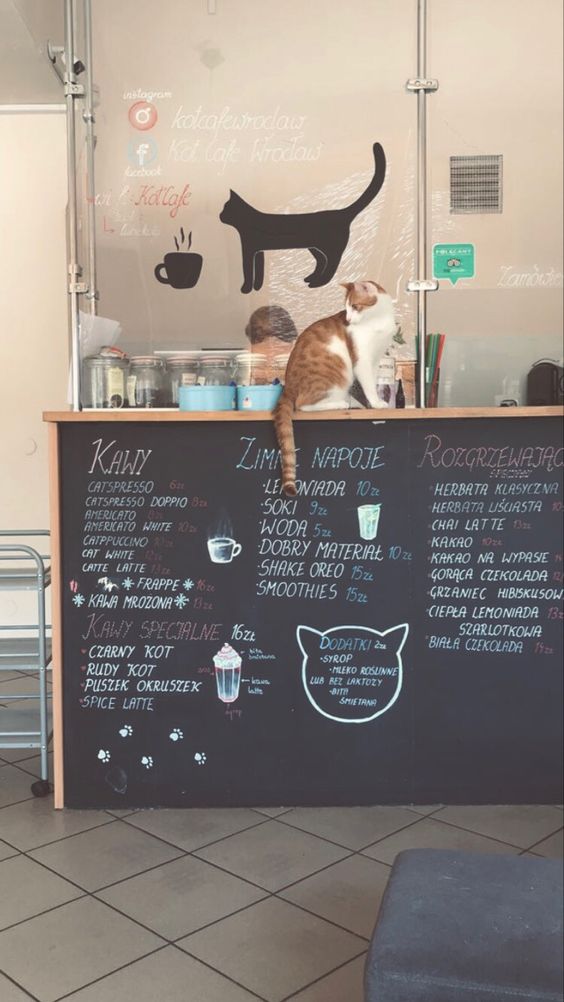 instagram
kotcafewrocław
Kot Cafe Wrocław
facebook
wi fi: KotCafe
POLECAMY
Zamówie
KAWY
CATSPRESSO 6zł
CATSPRESSO DOPPIO 8zł
AMERICATO 8zł
AMERICATO WHITE 10zł
CATPPUCCINO 10zł
CAT WHITE 12zł
LATTE CATTE 13zł
FRAPPE 16zł
KAWA MROŻONA 13zł
KAWY SPECJALNE 16zł
CZARNY KOT
RUDY KOT
PUSZEK OKRUSZEK
SPICE LATTE
bita śmietana
kawa latte
syrop
ZIMNE NAPOJE
LEMONIADA 10zł
SOKI 9zł
WODA 5zł
DOBRY MATERIAŁ 10zł
SHAKE OREO 15zł
SMOOTHIES 15zł
DODATKI 2zł
SYROP
MLEKO ROŚLINNE
LUB BEZ LAKTOZY
BITA
ŚMIETANA
ROZGRZEWAJĄC
HERBATA KLASYCZNA
HERBATA LIŚCIASTA 10
CHAI LATTE 13zł
KAKAO 10zł
KAKAO NA WYPASIE 14
GORĄCA CZEKOLADA 12
GRZANIEC HIBISKUSOW
CIEPŁA LEMONIADA 13z
SZARLOTKOWA
BIAŁA CZEKOLADA 14zł